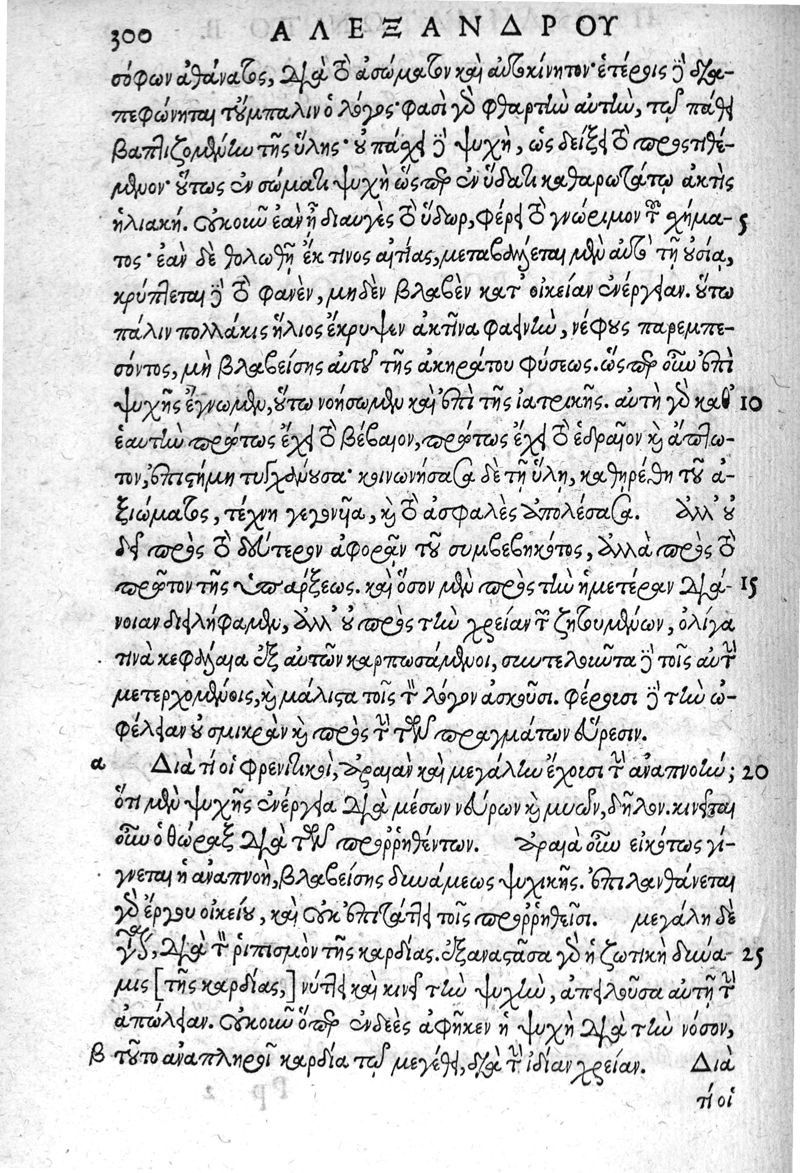 300 ΑΛΕΞΑΝΔΡΟΥ
σόφων ἀθάνατος, διὰ τὸ ἀσώματον καὶ αὐτοκίνητον· ἑτέροις δὲ δια-
πεφώνηται τοὔμπαλιν ὁ λόγος· φασὶ γὰρ φθαρτὴν αὐτὴν, τῷ πάθει
βαπτιζομένην τῆς ὕλης· ὑπάρχει δὲ ψυχὴ, ὡς δείξει τὸ προστιθέ-
μενον· οὕτως ἐν σώματι ψυχὴ ὥσπερ ἐν ὕδατι καθαρωτάτῳ ἀκτὶς
ἡλιακή. Οὐκοῦν ἐὰν ᾖ διαυγὲς τὸ ὕδωρ, φέρει τὸ γνώριμον τοῦ χήμα- 5
τος· ἐὰν δὲ θολωθῇ ἔκ τινος αἰτίας, μεταβάλλεται μὲν αὐτὸ τῇ οὐσίᾳ,
κρύπτεται δὲ τὸ φανὲν, μηδὲν βλαβὲν κατ' οἰκείαν ἐνέργειαν. οὕτω
πάλιν πολλάκις ἥλιος ἔκρυψεν ἀκτῖνα φαεινὴν, νέφους παρεμπε-
σόντος, μὴ βλαβείσης αὐτοῦ τῆς ἀκηράτου φύσεως. ὥσπερ οὖν ἐπὶ
ψυχῆς ἔγνωμεν, οὕτω νοήσωμεν καὶ ἐπὶ τῆς ἰατρικῆς. αὐτὴ γὰρ καθ' 10
ἑαυτὴν πρώτως ἔχει τὸ βέβαιον, πρώτως ἔχει τὸ ἑδραῖον καὶ ἄπτω-
τον, ἐπιστήμη τυγχάνουσα· κοινωνήσασα δὲ τῇ ὕλῃ, καθῃρέθη τοῦ ἀ-
ξιώματος, τέχνη γεγονυῖα, καὶ τὸ ἀσφαλὲς ἀπολέσασα. ἀλλ' οὐ
δεῖ πρὸς τὸ δεύτερον ἀφορᾷν τοῦ συμβεβηκότος, ἀλλὰ πρὸς τὸ
πρῶτον τῆς ὑπάρξεως. καὶ ὅσον μὲν πρὸς τὴν ἡμετέραν διά- 15
νοιαν διειλήφαμεν, ἀλλ' οὐ πρὸς τὴν χρείαν τῶν ζητουμένων, ὀλίγα
τινὰ κεφάλαια ἐξ αὐτῶν καρπωσάμενοι, συντελοῦντα δὲ τοῖς αὐτὴν
μετερχομένοις, καὶ μάλιστα τοῖς τὸν λόγον ἀσκοῦσι. φέροισι δὲ τὴν ὠ-
φέλειαν οὐ σμικρὰν καὶ πρὸς τὴν τῶν πραγμάτων εὕρεσιν.
α Διὰ τί οἱ φρενιτικοὶ, ἀραιὰν καὶ μεγάλην ἔχοισι τὴν ἀναπνοὴν; 20
ὅτι μὲν ψυχῆς ἐνέργεια διὰ μέσων νεύρων καὶ μυῶν, δῆλον. κινεῖται
οὖν ὁ θώραξ διὰ τῶν προῤῥηθέντων. ἀραιὰ οὖν εἰκότως γί-
γνεται ἡ ἀναπνοὴ, βλαβείσης δυνάμεως ψυχικῆς. ἐπιλανθάνεται
γὰρ ἔργου οἰκείου, καὶ οὐκ ἐπιτάττει τοῖς προῤῥηθεῖσι. μεγάλη δὲ
διὰ τὸν ῥιπισμὸν τῆς καρδίας. ἐξαναστᾶσα γὰρ ἡ ζοτικὴ δύνα- 25
μις [τῆς καρδίας,] νύττει καὶ κινεῖ τὴν ψυχὴν, ἀπειλοῦσα αὐτῇ τὴν
ἀπώλειαν. Οὐκοῦν ὅπερ ἐνδεὲς ἀφῆκεν ἡ ψυχὴ διὰ τὴν νόσον,
β τοῦτο ἀναπληροῖ καρδία τῷ μεγέθει, διὰ τὴν ἰδίαν χρείαν. Διὰ
τί οἱ